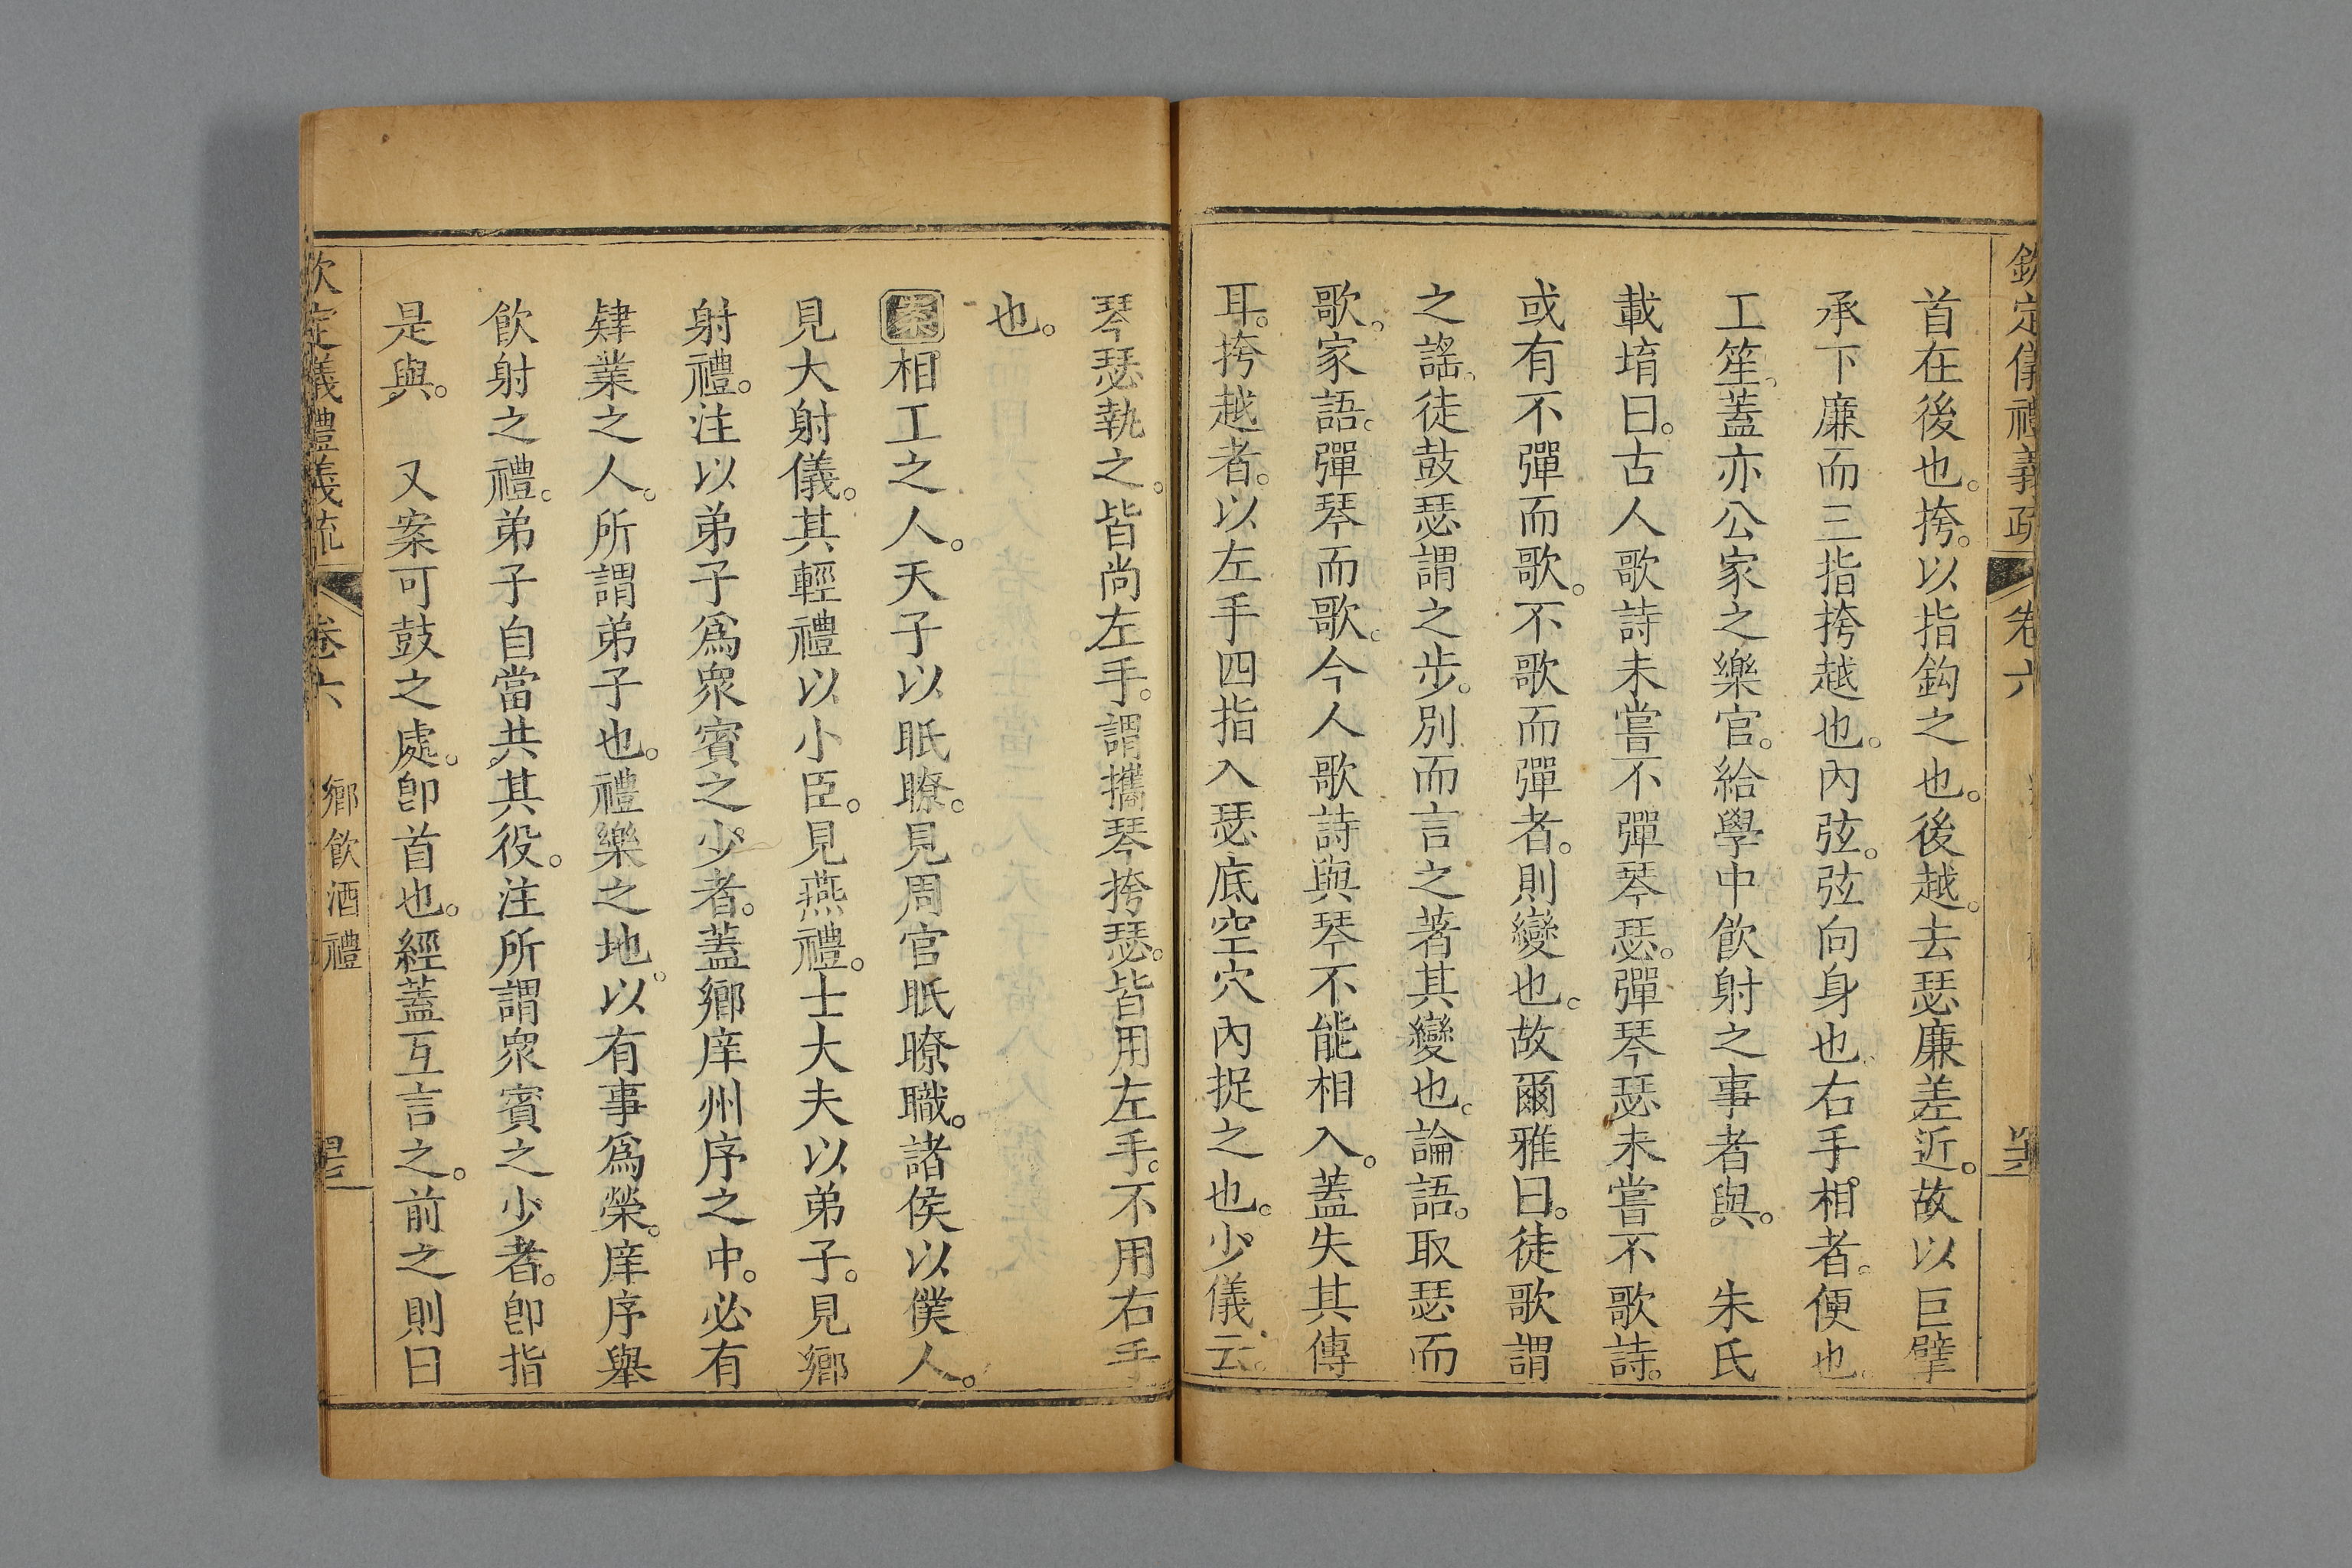 欽定儀禮義疏 卷六
首在後也。挎。以指鈎之也。後越。去瑟廉差近。故以巨擘
承下廉而三指挎越也。內弦。弦向身也。右手相者。便也。
工笙。蓋亦公家之樂官。給學中飲射之事者與。 朱氏
載堉曰。古人歌詩未嘗不彈琴瑟。彈琴瑟未嘗不歌詩。
或有不彈而歌。不歌而彈者。則變也。故爾雅曰。徒歌謂
之謠。徒鼓瑟謂之步。別而言之著其變也。論語。取瑟而
歌。家語。彈琴而歌。今人歌詩與琴不能相入。蓋失其傳
耳。挎越者。以左手四指入瑟底空穴內捉之也。少儀云。
琴瑟執之。皆尚左手。謂攜琴挎瑟。皆用左手。不用右手
也。
案相工之人。天子以眡瞭。見周官眡瞭職。諸侯以僕人。
見大射儀。其輕禮以小臣。見燕禮。士大夫以弟子。見鄉
射禮。注以弟子爲衆賓之少者。蓋鄉庠州序之中。必有
肄業之人。所謂弟子也。禮樂之地。以有事爲榮。庠序舉
飲射之禮。弟子自當共其役。注所謂衆賓之少者。卽指
是與。 又案可鼓之處。卽首也。經蓋互言之。前之則曰
欽定儀禮義疏 卷六 鄉飲酒禮